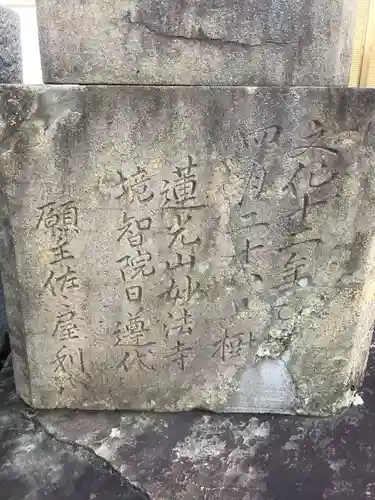 文化十二年乙
四月二十八日樹
蓮光山妙法寺
境智院日遵代
願主佐〻屋利八